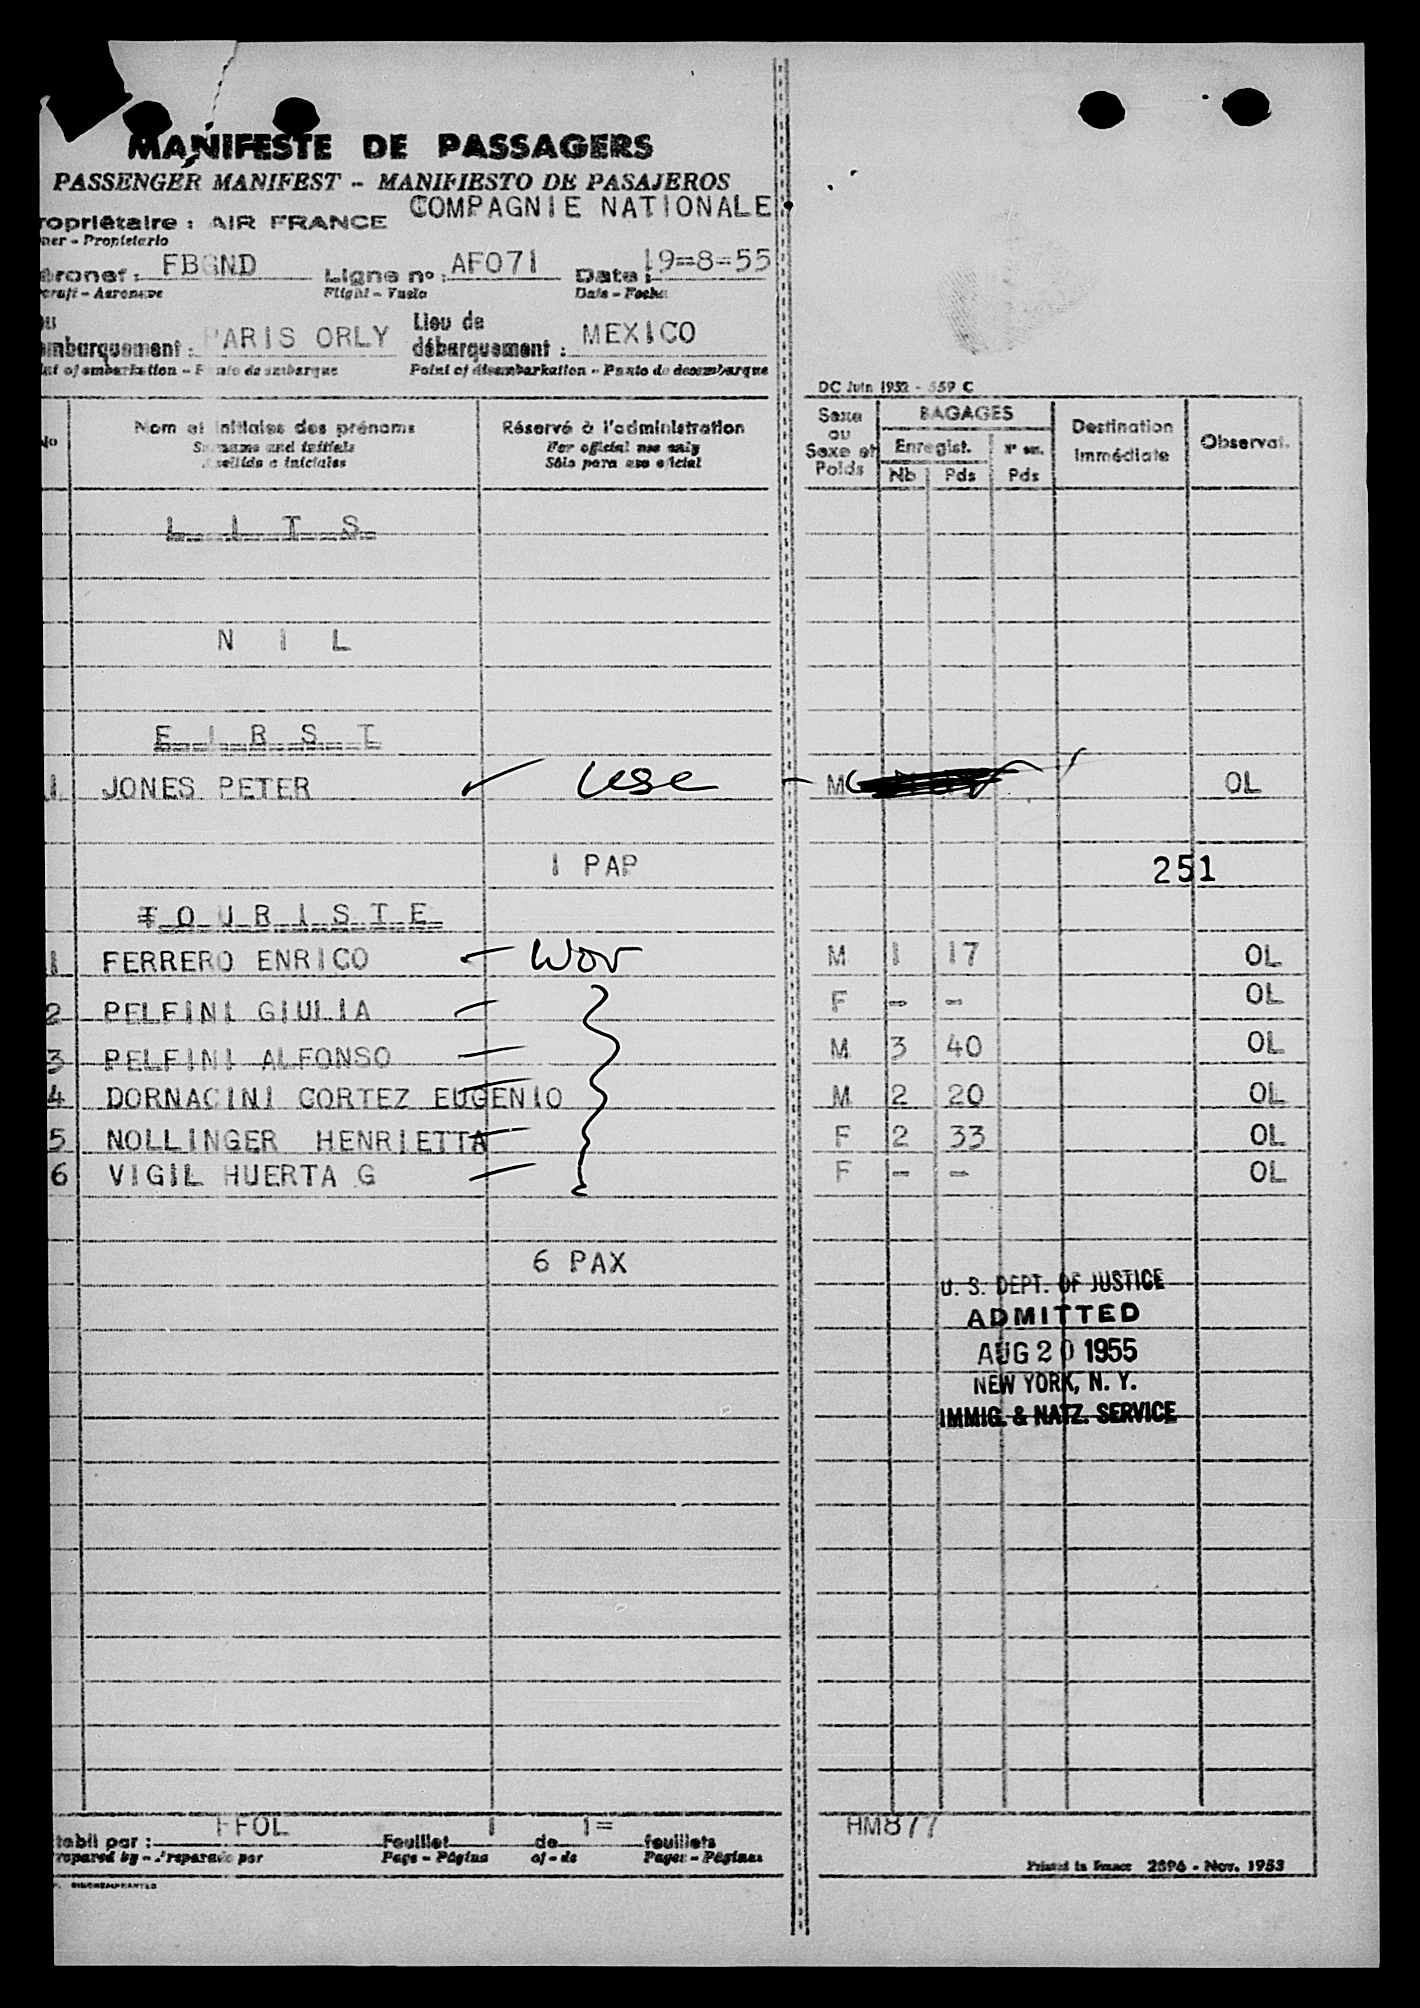 MANIFESTE DE PASSAGERS
PASSENGER MANIFEST - MANIFIESTO DE PASAJEROS
ropriétaire : AIR FRANCE COMPAGNIE NATIONALE
ner - Propietario
éronef : FBGND Ligne nº : AF071 Date : 19-8-55
craft - Aeronave Flight - Vuelo Date - Fecha
ou Lieu de
mbarquement : PARIS ORLY débarquement : MEXICO
int of embarkation - Punto de embarque Point of disembarkation - Punto de desembarque
DC Juin 1952 - 559 C
Nº
Nom et initiales des prénoms
Surname and initials
Apellido e iniciales
Réservé à l'administration
For official use only
Sólo para uso oficial
Sexe
ou
Sexe et
Poids
BAGAGES
Enregist.
Nb Pds Pds
Destination
immédiate
Observat.
L I T S
N I L
F I R S T
1 JONES PETER M OL
1 PAP 251
T O U R I S T E
1 FERRERO ENRICO M 1 17 OL
2 PELFINI GIULIA F - - OL
3 PELFINI ALFONSO M 3 40 OL
4 DORNACINI CORTEZ EUGENIO M 2 20 OL
5 NOLLINGER HENRIETTA F 2 33 OL
6 VIGIL HUERTA G F - - OL
6 PAX
U. S. DEPT. OF JUSTICE
ADMITTED
AUG 20 1955
NEW YORK, N. Y.
IMMIG. & NATZ. SERVICE
tabli par : FFOL Feuillet 1 de 1= feuillets HM877
repared by - Preparado por Page - Página of - de Pages - Páginas
Printed in France 2596 - Nov. 1953